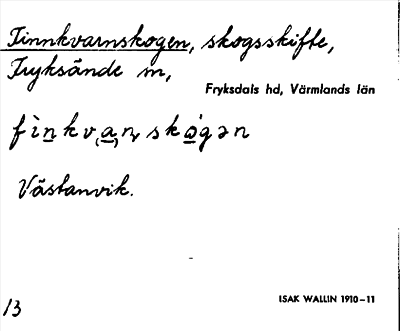 Finnkvarnskogen, skogsskifte,
Fryksände sn,
Fryksdals hd, Värmlands län
fìnkv(a)n, skógən
Västanvik.
13
ISAK WALLIN 1910-11